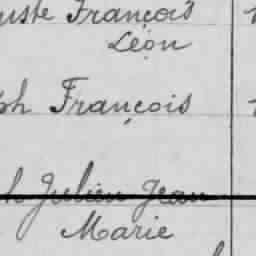 uste François
Léon
ph François
h Julien Jean
Marie